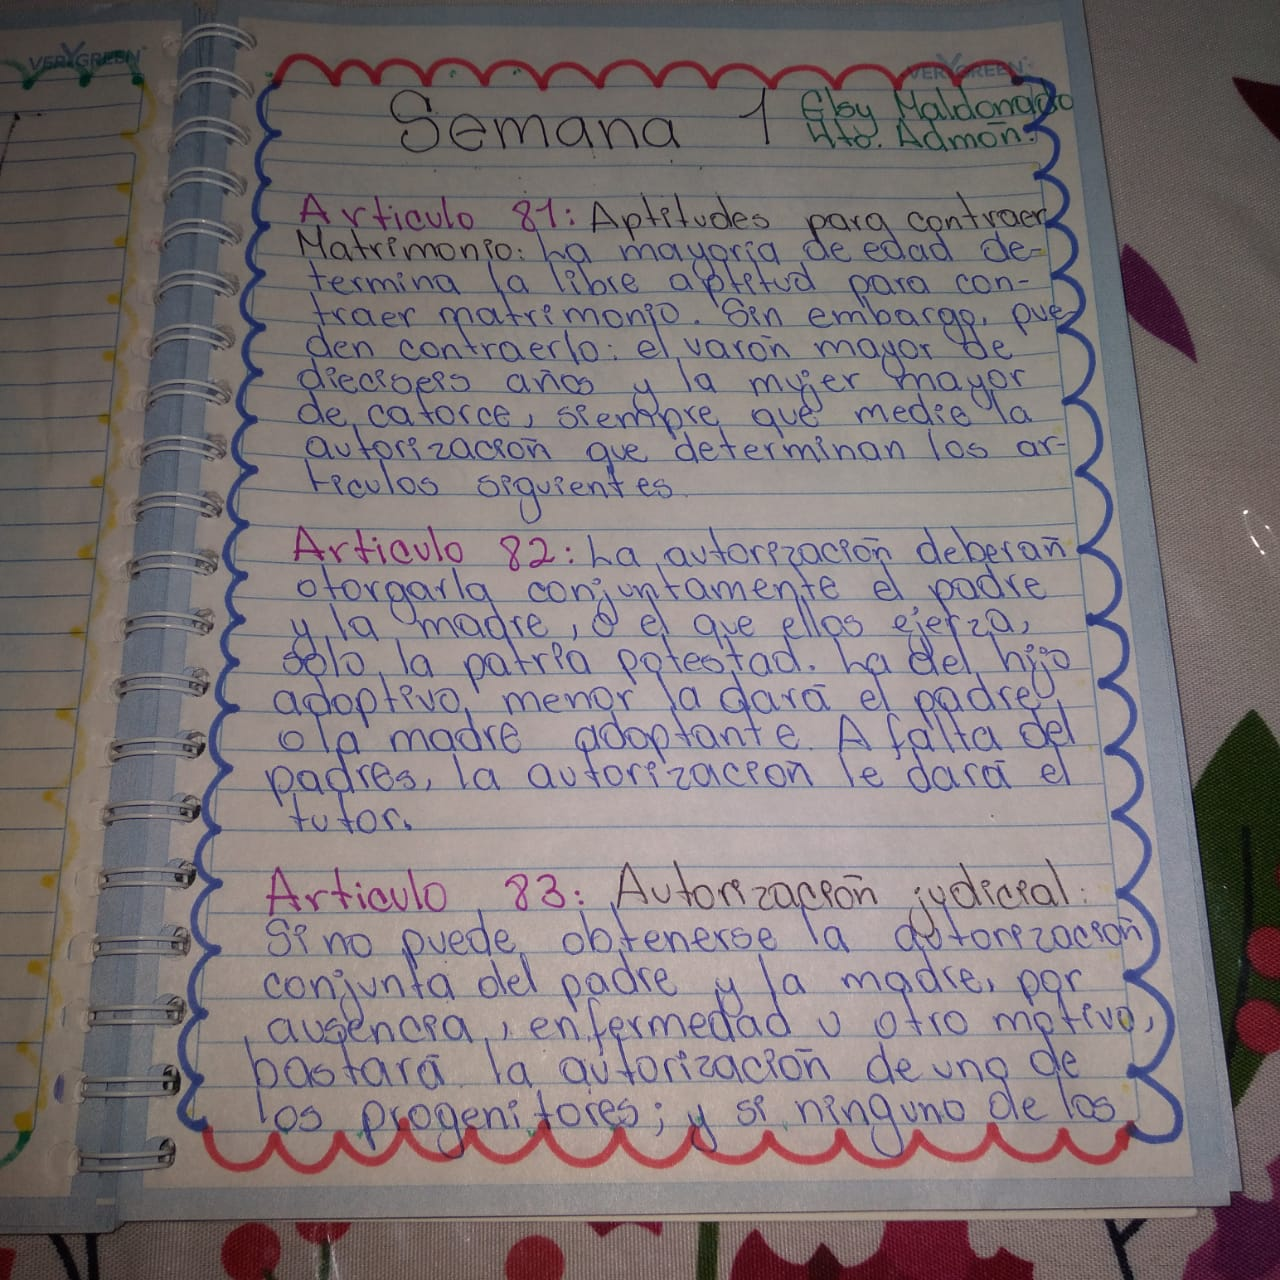 VERYGREEN
VERYGREEN
Semana 1
Elsy Maldonado
4to. Admón.
Articulo 81: Aptitudes para contraer
Matrimonio: La mayoría de edad de-
termina la libre aptitud para con-
traer matrimonio. Sin embargo, pue
den contraerlo: el varón mayor de
dieciseis años y la mujer mayor
de catorce, siempre que medie la
autorización que determinan los ar-
tículos siguientes.
Articulo 82: La autorización deberán
otorgarla conjuntamente el padre
y la madre, o el que ellos ejerza,
sólo la patria potestad. La del hijo
adoptivo menor la dará el padre
o la madre adoptante. A falta del
padres, la autorización le dará el
tutor.
Articulo 83: Autorización judicial:
Si no puede obtenerse la autorización
conjunta del padre y la madre, por
ausencia, enfermedad u otro motivo,
bastará la autorización de uno de
los progenitores; y si ninguno de los